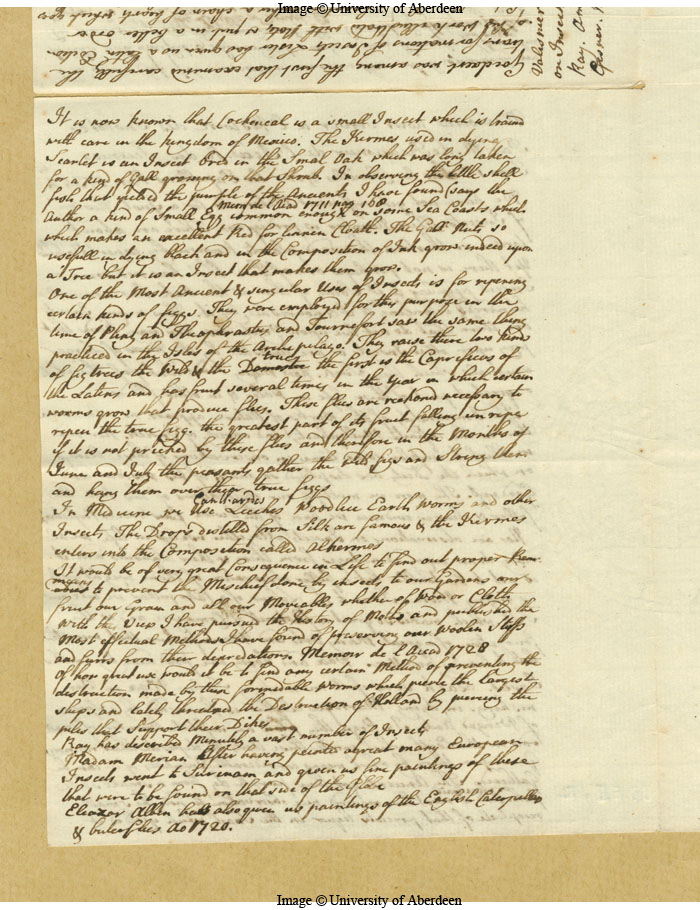 Image © University of Aberdeen
Goedart was among the first that examined carefully the
transformations of Insects Lister has given us a Latin Edition
of his Work illustrated with Notes & put in a better order
Valisnier
on Insec
Ray. An
Gesner.
It is now known that Cocheneal is a small Insect which is traind
with care in the Kingdom of Mexico. The Kermes used in dying
Scarlet is an Insect bred in the Smal Oak which was long taken
for a kind of Gall growing on that Shrub. In observing the little shell
fish that yielded the purple of the Ancients I have found (says the
Mem de l Acad 1711 pag 168
Author a kind of Small Egg common enough on some Sea Coasts which
which makes an excellent Red for linnen Cloath. The Gall Nuts so
usefull in dying black and in the Composition of Ink grow indeed upon
a Tree but it is an Insect that makes them grow.
One of the Most Ancient & singular Uses of Insects is for repening
certain kinds of figgs. They were employed for this purpose in the
time of Pliny and Theophrastus and Tournefort saw the same thing
practiced in the Isles of the Archipelago. They raise there two kinds
true
of fig trees the Wild & the Domestic the first is the Caprificus of
the Latins and has fruit several times in the year in which certain
worms grow that produce flies. These flies are reckoned necessary to
repen the true figg. the greatest part of its fruit falling unripe
if it is not pricked by these flies and therefore in the Months of
June and July the peasants gather the wild figs and String them
and hang them over their true figgs
Cantharides
In Medicine we Use Leeches Woodlice Earth Worms and other
Insects The Drops destilled from Silk are famous & the Kermes
enters into the Composition called Alkermes
It would be of very great Consequence in Life to find out proper
means to prevent the Mischief done by insects to our Gardens our
fruit our Grain and all our Moveables whether of Wood or Cloth
With the View I have pursued the History of Moths and published the
Most effectual Methods I have found of preserving our Woolen Stuffs
and furrs from their depredations. Memoir de l Acad 1728
of how great use would it be to find any certain Method of preventing the
destruction made by those formidable worms which pierce the largest
ships and lately threatned the Destruction of Holland by piercing the
piles that Support their Dikes
Ray has described Minutely a vast number of Insects
Madam Merian after having painted a great many European
Insects went to Surinam and given us fine paintings of these
that were to be found on that side of the Globe
Eleazar Albin has also given us paintings of the English Caterpillars
& buterflies Ao 1720.
Image © University of Aberdeen